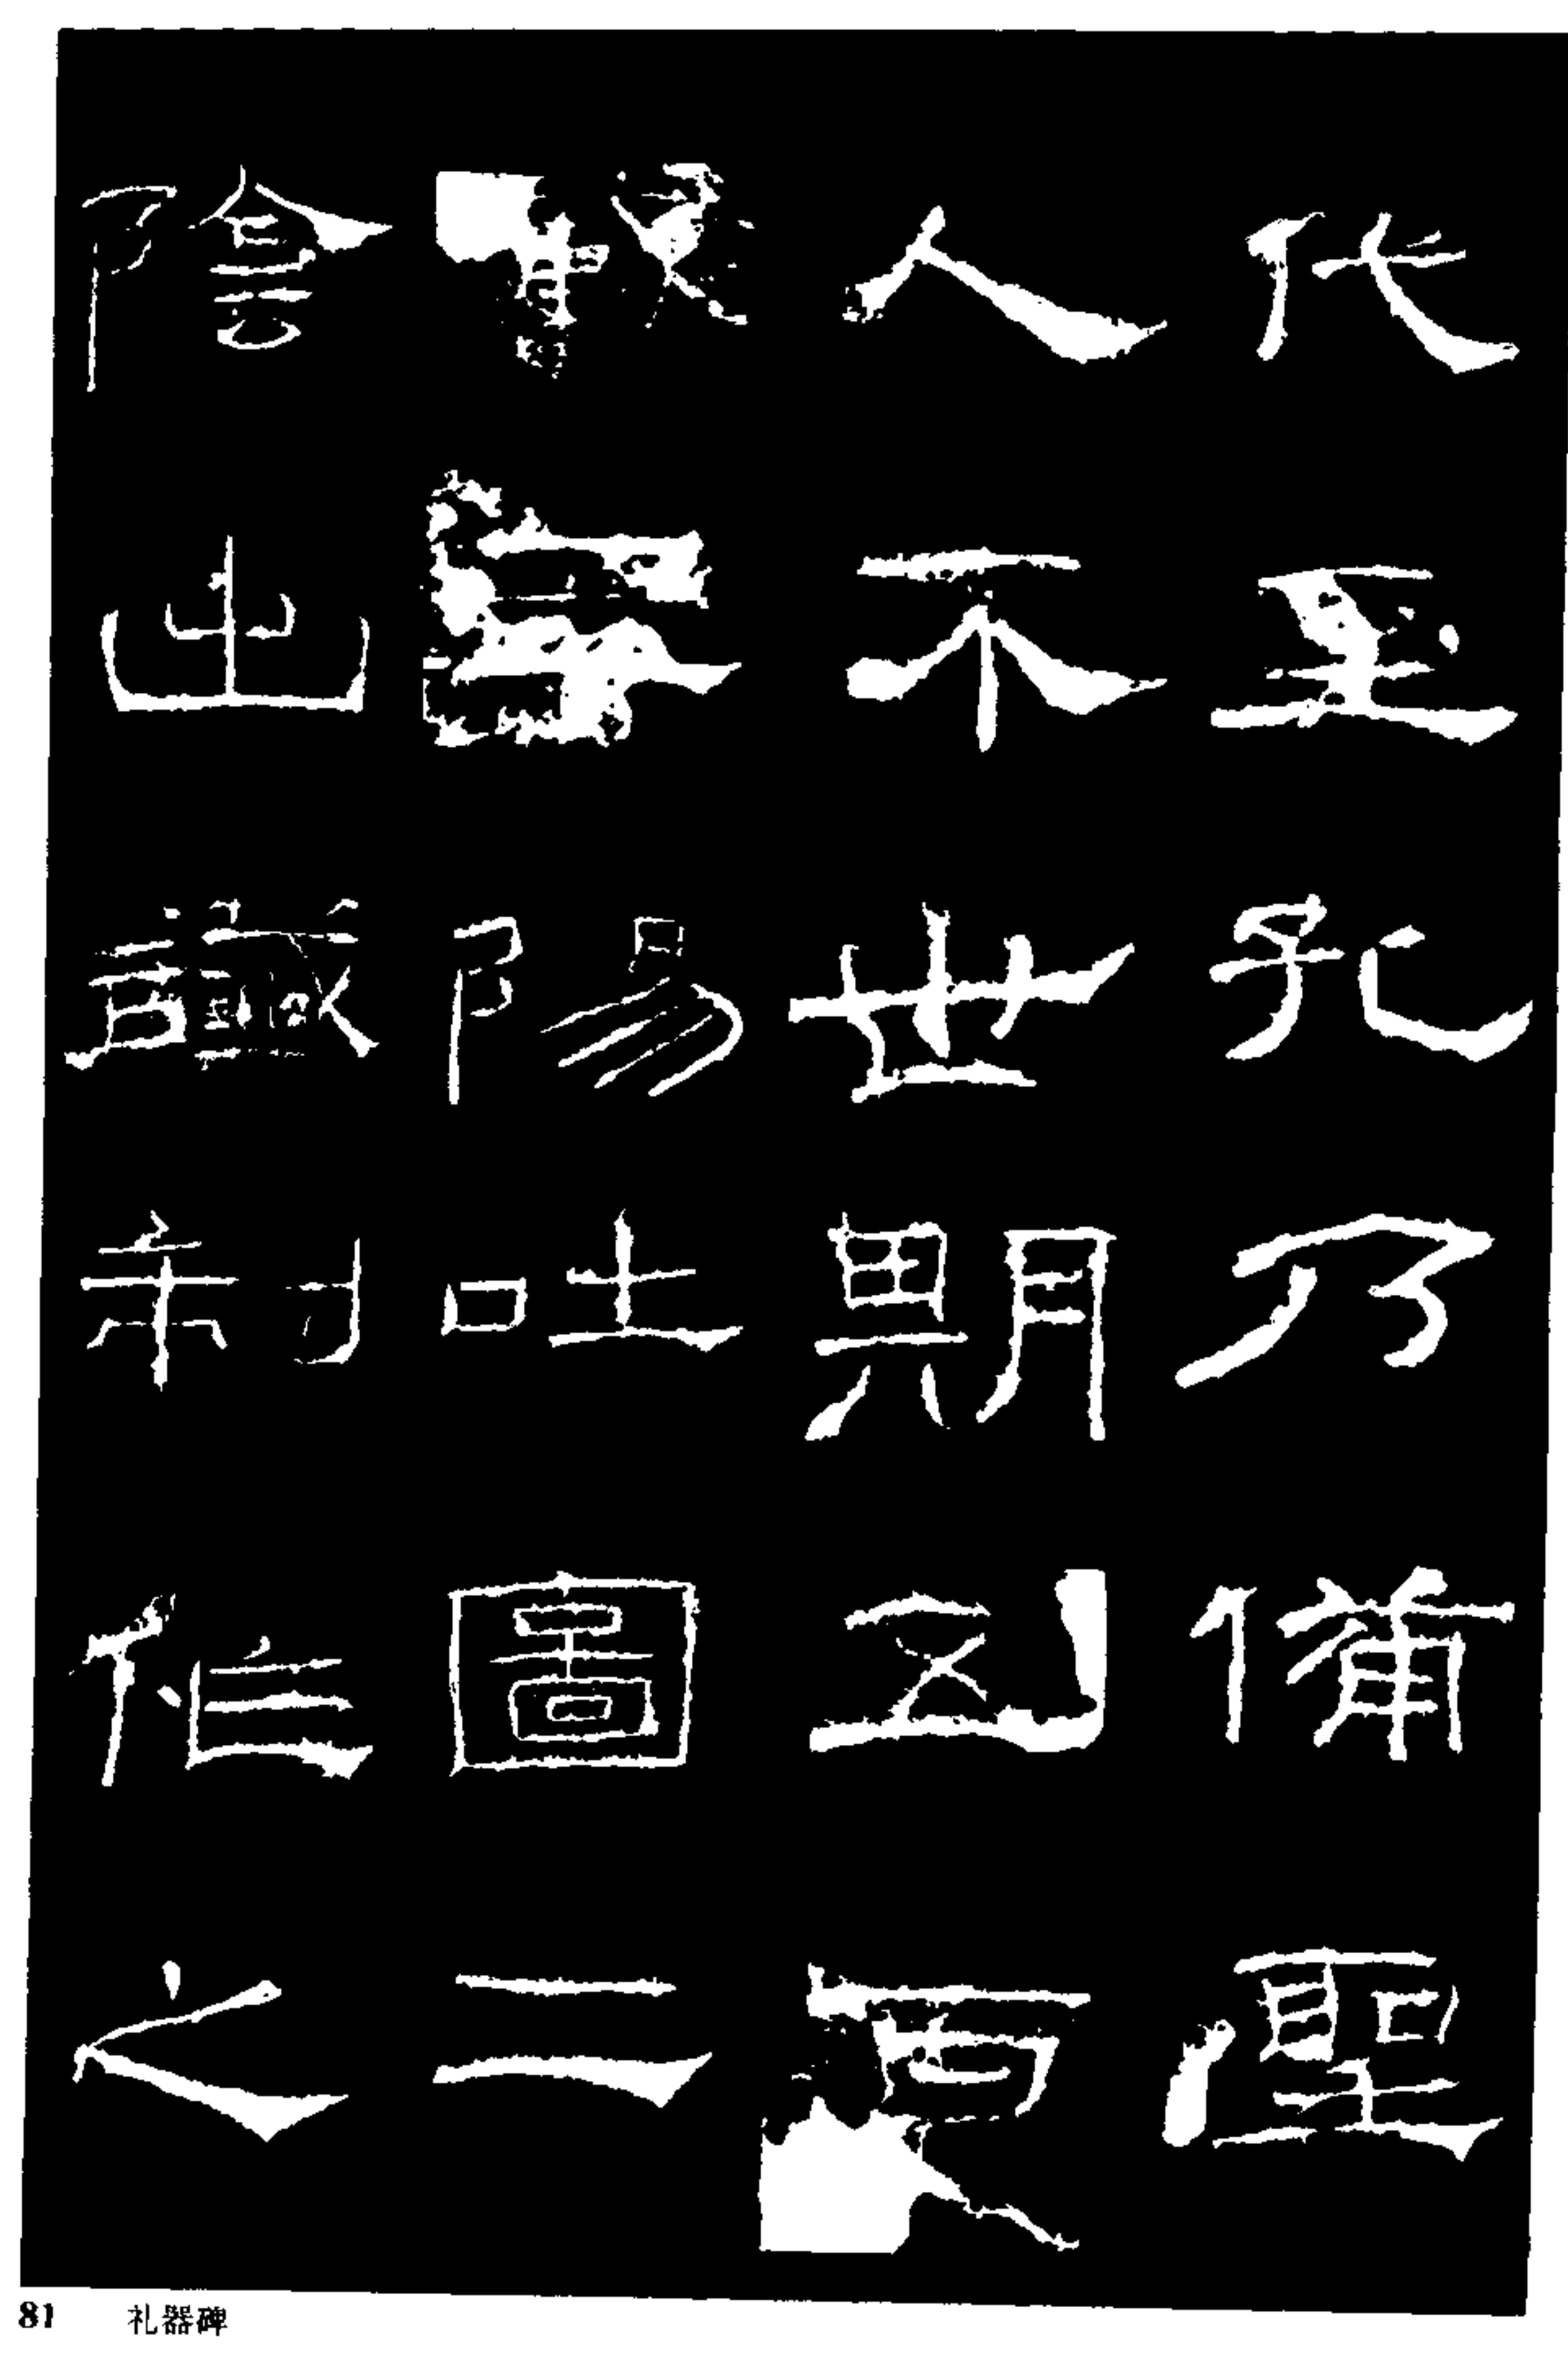 代至孔乃備聖
人不世期五百
陽吐圖二
陰出讖制作之
81 礼器碑